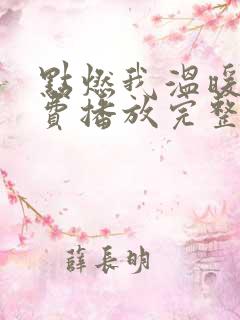 點燃我溫暖
費播放完整
薛長明